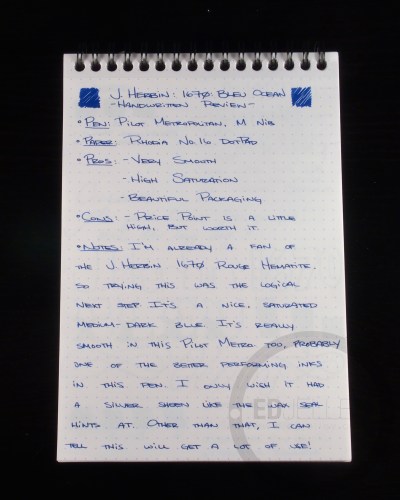 J. Herbin: 1670: Bleu Ocean
- Handwritten Review -
• Pen: Pilot Metropolitan, M Nib
• Paper: Rhodia No. 16 DotPad
• Pros: - Very Smooth
- High Saturation
- Beautiful Packaging
• Cons: - Price Point is a little
high, but worth it.
• Notes: I'm already a fan of
the J. Herbin 1670 Rouge Hematite,
so trying this was the logical
next step. It's a nice, saturated
medium-dark blue. It's really
smooth in this Pilot Metro too, probably
one of the better performing inks
in this pen. I only wish it had
a silver sheen like the wax seal
hints at. Other than that, I can
tell this will get a lot of use!